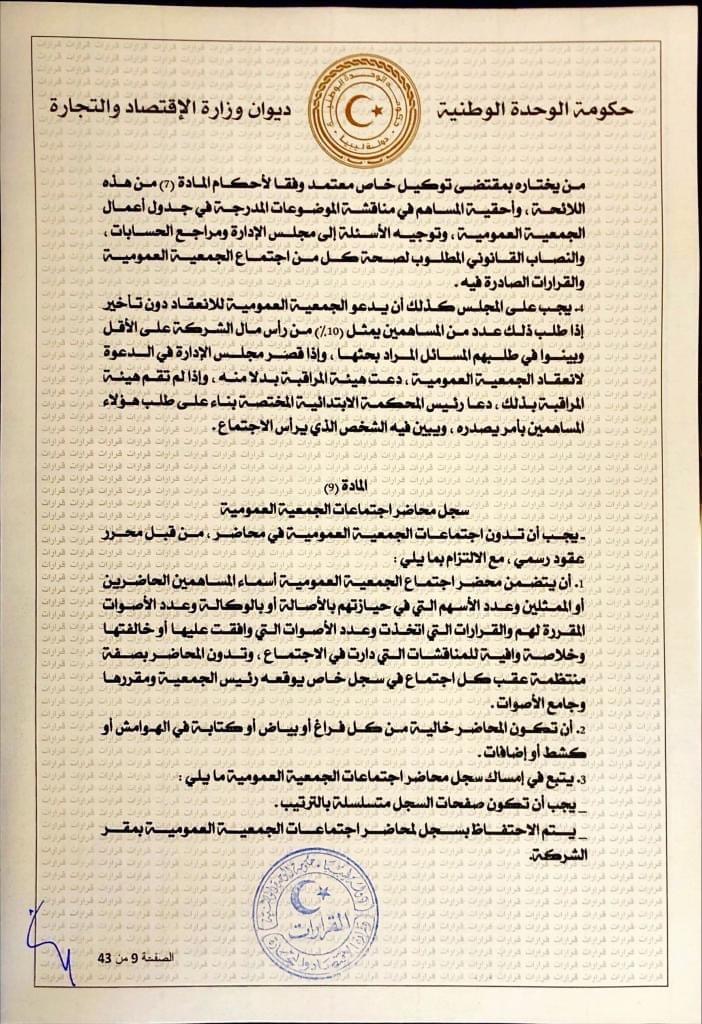 حكومة الوحدة الوطنية
ديوان وزارة الإقتصاد والتجارة
حكومة الوحدة الوطنية
دولة ليبيا
من يختاره بمقتضى توكيل خاص معتمد وفقا لأحكام المادة (7) من هذه
اللائحة ، وأحقية المساهم في مناقشة الموضوعات المدرجة في جدول أعمال
الجمعية العمومية ، وتوجيه الأسئلة إلى مجلس الإدارة ومراجع الحسابات ،
والنصاب القانوني المطلوب لصحة كل من اجتماع الجمعية العمومية
والقرارات الصادرة فيه .
4. يجب على المجلس كذلك أن يدعو الجمعية العمومية للانعقاد دون تأخير
إذا طلب ذلك عدد من المساهمين يمثل (10٪) من رأس مال الشركة على الأقل
وبينوا في طلبهم المسائل المراد بحثها ، وإذا قصر مجلس الإدارة في الدعوة
لانعقاد الجمعية العمومية ، دعت هيئة المراقبة بدلا منه ، وإذا لم تقم هيئة
المراقبة بذلك ، دعا رئيس المحكمة الابتدائية المختصة بناء على طلب هؤلاء
المساهمين بأمر يصدره ، ويبين فيه الشخص الذي يرأس الاجتماع .
المادة (9)
سجل محاضر اجتماعات الجمعية العمومية
ـ يجب أن تدون اجتماعات الجمعية العمومية في محاضر ، من قبل محرر
عقود رسمي ، مع الالتزام بما يلي :
1. أن يتضمن محضر اجتماع الجمعية العمومية أسماء المساهمين الحاضرين
أو الممثلين وعدد الأسهم التي في حيازتهم بالأصالة أو بالوكالة وعدد الأصوات
المقررة لهم والقرارات التي اتخذت وعدد الأصوات التي وافقت عليها أو خالفتها
وخلاصة وافية للمناقشات التي دارت في الاجتماع ، وتدون المحاضر بصفة
منتظمة عقب كل اجتماع في سجل خاص يوقعه رئيس الجمعية ومقررها
وجامع الأصوات .
2. أن تكون المحاضر خالية من كل فراغ أو بياض أو كتابة في الهوامش أو
كشط أو إضافات .
3. يتبع في إمساك سجل محاضر اجتماعات الجمعية العمومية ما يلي :
_ يجب أن تكون صفحات السجل متسلسلة بالترتيب .
_ يتم الاحتفاظ بسجل لمحاضر اجتماعات الجمعية العمومية بمقر
الشركة.
القرارات
وزارة الاقتصاد والتجارة
الصفحة 9 من 43